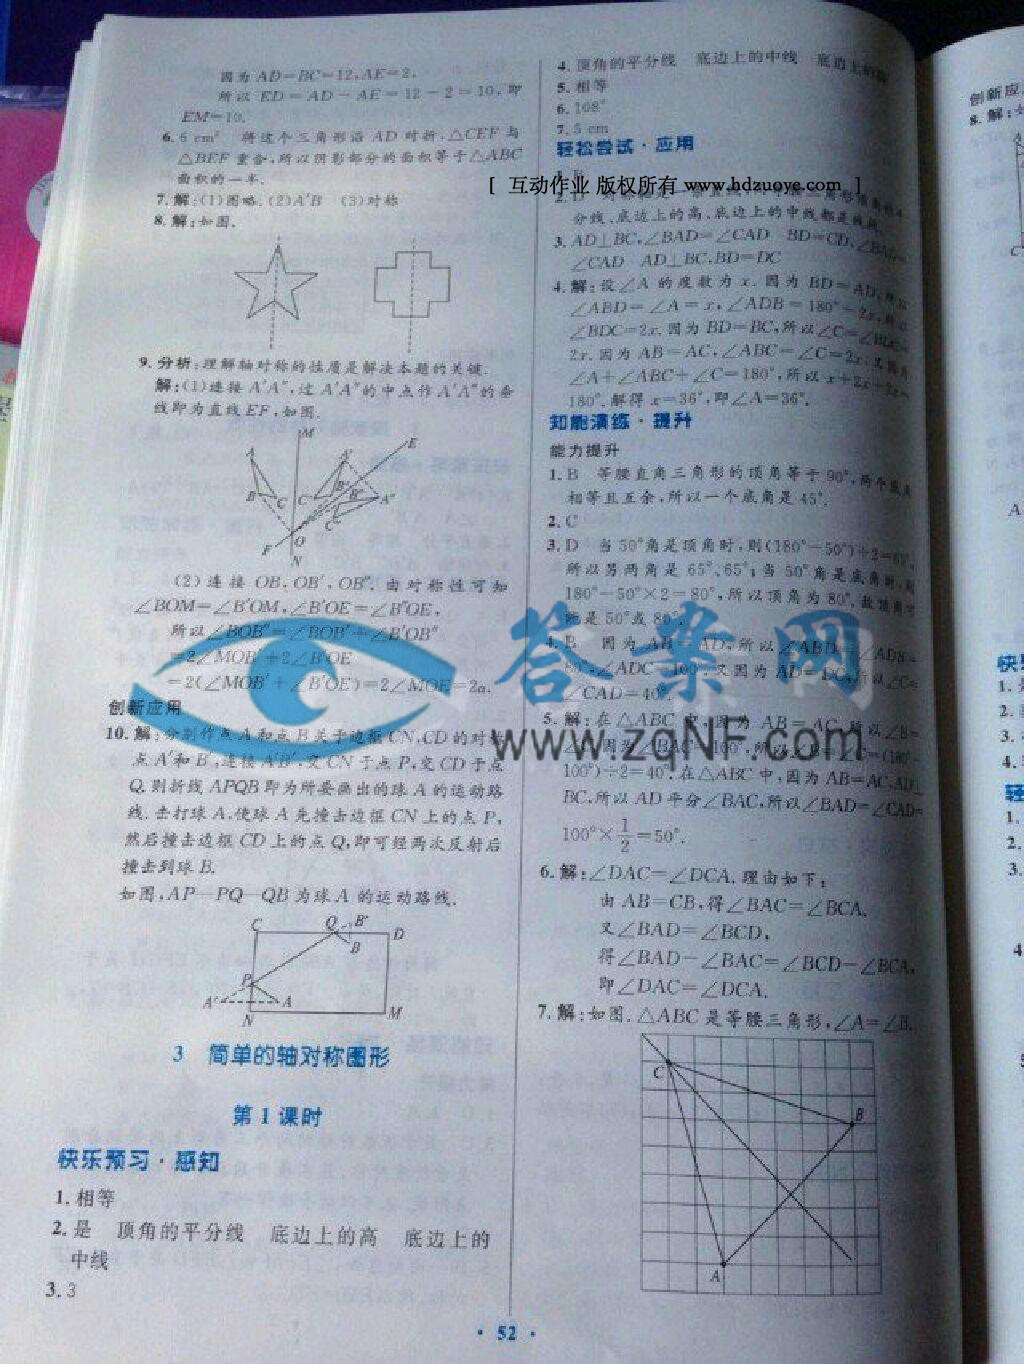 因为 AD=BC=12,AE=2,
所以 ED=AD-AE=12-2=10,即
EM=10.
6. 6 cm² 将这个三角形沿 AD 对折,△CEF 与
△BEF 重合,所以阴影部分的面积等于△ABC
面积的一半.
7. 解:(1)图略. (2)A′B (3)对称
8. 解:如图.
9. 分析:理解轴对称的性质是解决本题的关键.
解:(1)连接 A′A″,过 A′A″的中点作 A′A″的垂
线即为直线 EF,如图.
M
E
A
A′
B
C
C
B′
B″
A″
C
O
F
N
(2)连接 OB,OB′,OB″. 由对称性可知
∠BOM=∠B′OM,∠B′OE=∠B″OE,
所以∠BOB″=∠BOB′+∠B′OB″
=2∠MOB′+2∠B′OE
=2(∠MOB′+∠B′OE)=2∠MOE=2α.
创新应用
10. 解:分别作点 A 和点 B 关于边框 CN,CD 的对称
点 A′和 B′,连接 A′B′,交 CN 于点 P,交 CD 于点
Q.则折线 APQB 即为所要画出的球 A 的运动路
线.击打球 A,使球 A 先撞击边框 CN 上的点 P,
然后撞击边框 CD 上的点 Q,即可经两次反射后
撞击到球 B.
如图,AP—PQ—QB 为球 A 的运动路线.
C
Q
B′
D
B
P
A′
A
N
M
3 简单的轴对称图形
第 1 课时
快乐预习·感知
1. 相等
2. 是 顶角的平分线 底边上的高 底边上的
中线
3. 3
4. 顶角的平分线 底边上的中线 底边上的
5. 相等
6. 108°
7. 5 cm
轻松尝试·应用
[ 互动作业 版权所有 www.hdzuoye.com ]
2. D
分线、底边上的高、底边上的中线都是线段.
3. AD⊥BC,∠BAD=∠CAD BD=CD,∠BAD=
∠CAD AD⊥BC,BD=DC
4. 解:设∠A 的度数为 x. 因为 BD=AD,所以
∠ABD=∠A=x,∠ADB=180°-2x,所以
∠BDC=2x.因为 BD=BC,所以∠C=∠BDC=
2x.因为 AB=AC,∠ABC=∠C=2x,又因为
∠A+∠ABC+∠C=180°,所以 x+2x+2x=
180°.解得 x=36°,即∠A=36°.
知能演练·提升
能力提升
1. B 等腰直角三角形的顶角等于 90°,两个底角
相等且互余,所以一个底角是 45°.
2. C
3. D 当 50°角是顶角时,则(180°-50°)÷2=65°,
所以另两角是 65°、65°;当 50°角是底角时,则
180°-50°×2=80°,所以顶角为 80°.故顶角可
能是 50°或 80°.
4. B 因为 AB=AD,所以∠ABD=∠ADB=
80°,∠ADC=100°.又因为 AD=DC,所以∠C=
∠CAD=40°.
5. 解:在△ABC 中,因为 AB=AC,所以∠B=
∠C.因为∠BAC=100°,所以∠B=∠C=(180°-
100°)÷2=40°.在△ABC 中,因为 AB=AC,AD⊥
BC,所以 AD 平分∠BAC,所以∠BAD=∠CAD=
100°×1/2=50°.
6. 解:∠DAC=∠DCA.理由如下:
由 AB=CB,得∠BAC=∠BCA.
又∠BAD=∠BCD,
得∠BAD-∠BAC=∠BCD-∠BCA,
即∠DAC=∠DCA.
7. 解:如图.△ABC 是等腰三角形,∠A=∠B.
C
B
A
答案网
www.zqNF.com
· 52 ·
创新应
8. 解: